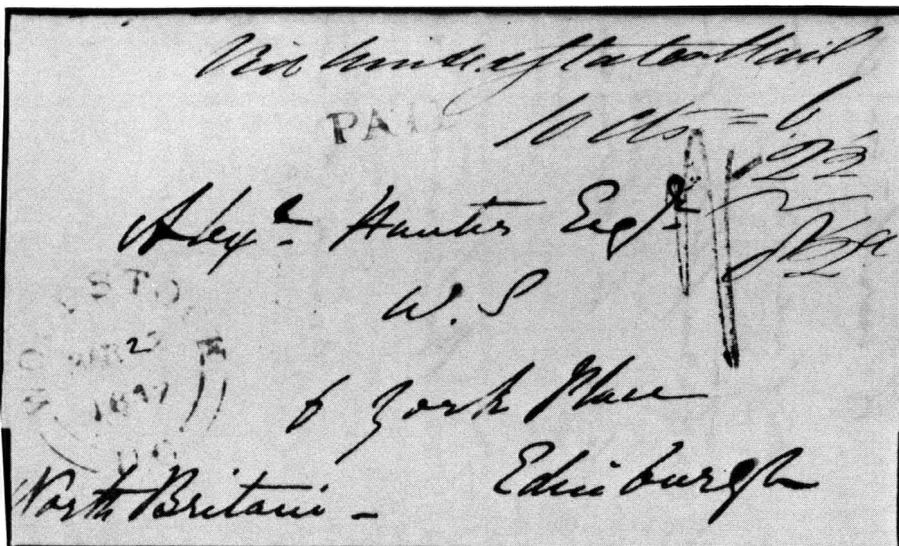 Via United States Mail
PAID
10 cts = 6
22
Alexr. Hunter Esqr.
W. S
6 York Place
Edinburgh
North Britain -
WOODSTOCK
MAR 2
1847